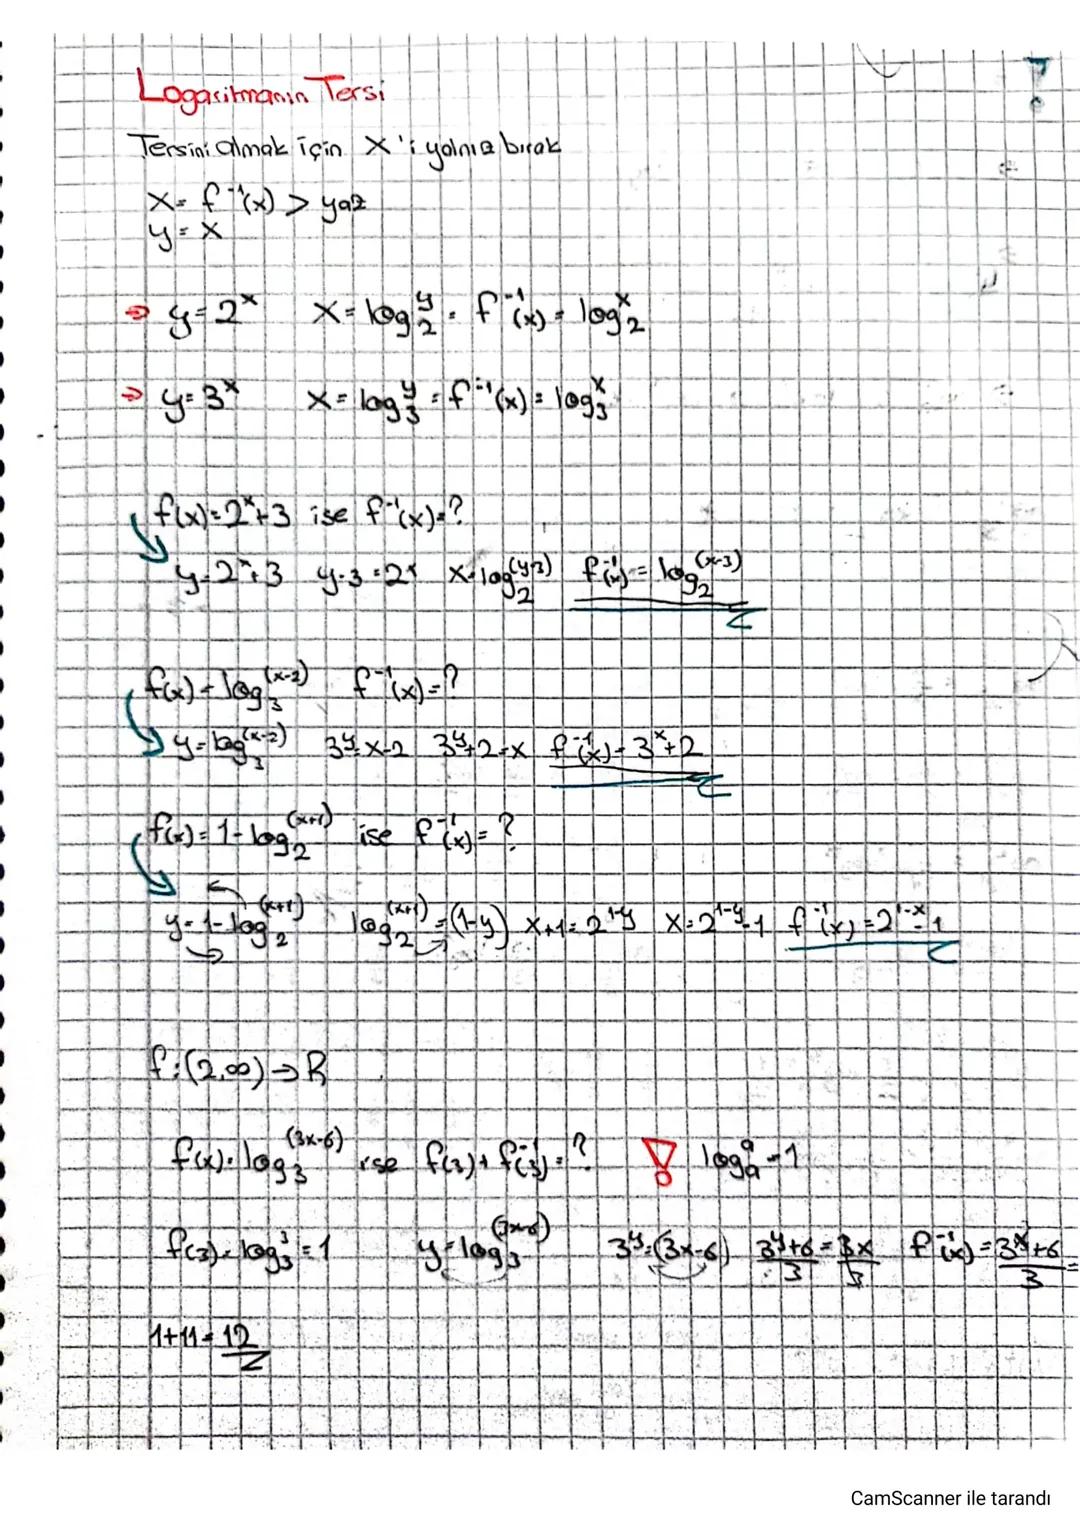 Logaritmanın Tersi
Tersini almak için x'i yalnız bırak
x = f⁻¹(x) > yaz
y = x
⇒ y = 2ˣ x = log₂ʸ = f⁻¹(x) = log₂ˣ
⇒ y = 3ˣ x = log₃ʸ = f⁻¹(x) = log₃ˣ
f(x) = 2ˣ+3 ise f⁻¹(x) = ?
y = 2ˣ+3 y-3 = 2ˣ x = log₂^(y-3) f⁻¹(x) = log₂^(x-3)
f(x) = log₃^(x-2) f⁻¹(x) = ?
y = log₃^(x-2) 3ʸ = x-2 3ʸ+2 = x f⁻¹(x) = 3ˣ+2
f(x) = 1-log₂^(x+1) ise f⁻¹(x) = ?
y = 1-log₂^(x+1) log₂^(x+1) = (1-y) x+1 = 2^(1-y) x = 2^(1-y)-1 f⁻¹(x) = 2^(1-x)-1
f:(2,∞)→R
f(x) = log₃^(3x-6) ise f(3)+f⁻¹(3) = ? ! logₐᵃ = 1
f(3) = log₃³ = 1 y = log₃^(3x-6) 3ʸ = (3x-6) 3ʸ+6/3 = 3x/3 f⁻¹(x) = 3ˣ+6/3 =
1+11 = 12
CamScanner ile tarandı